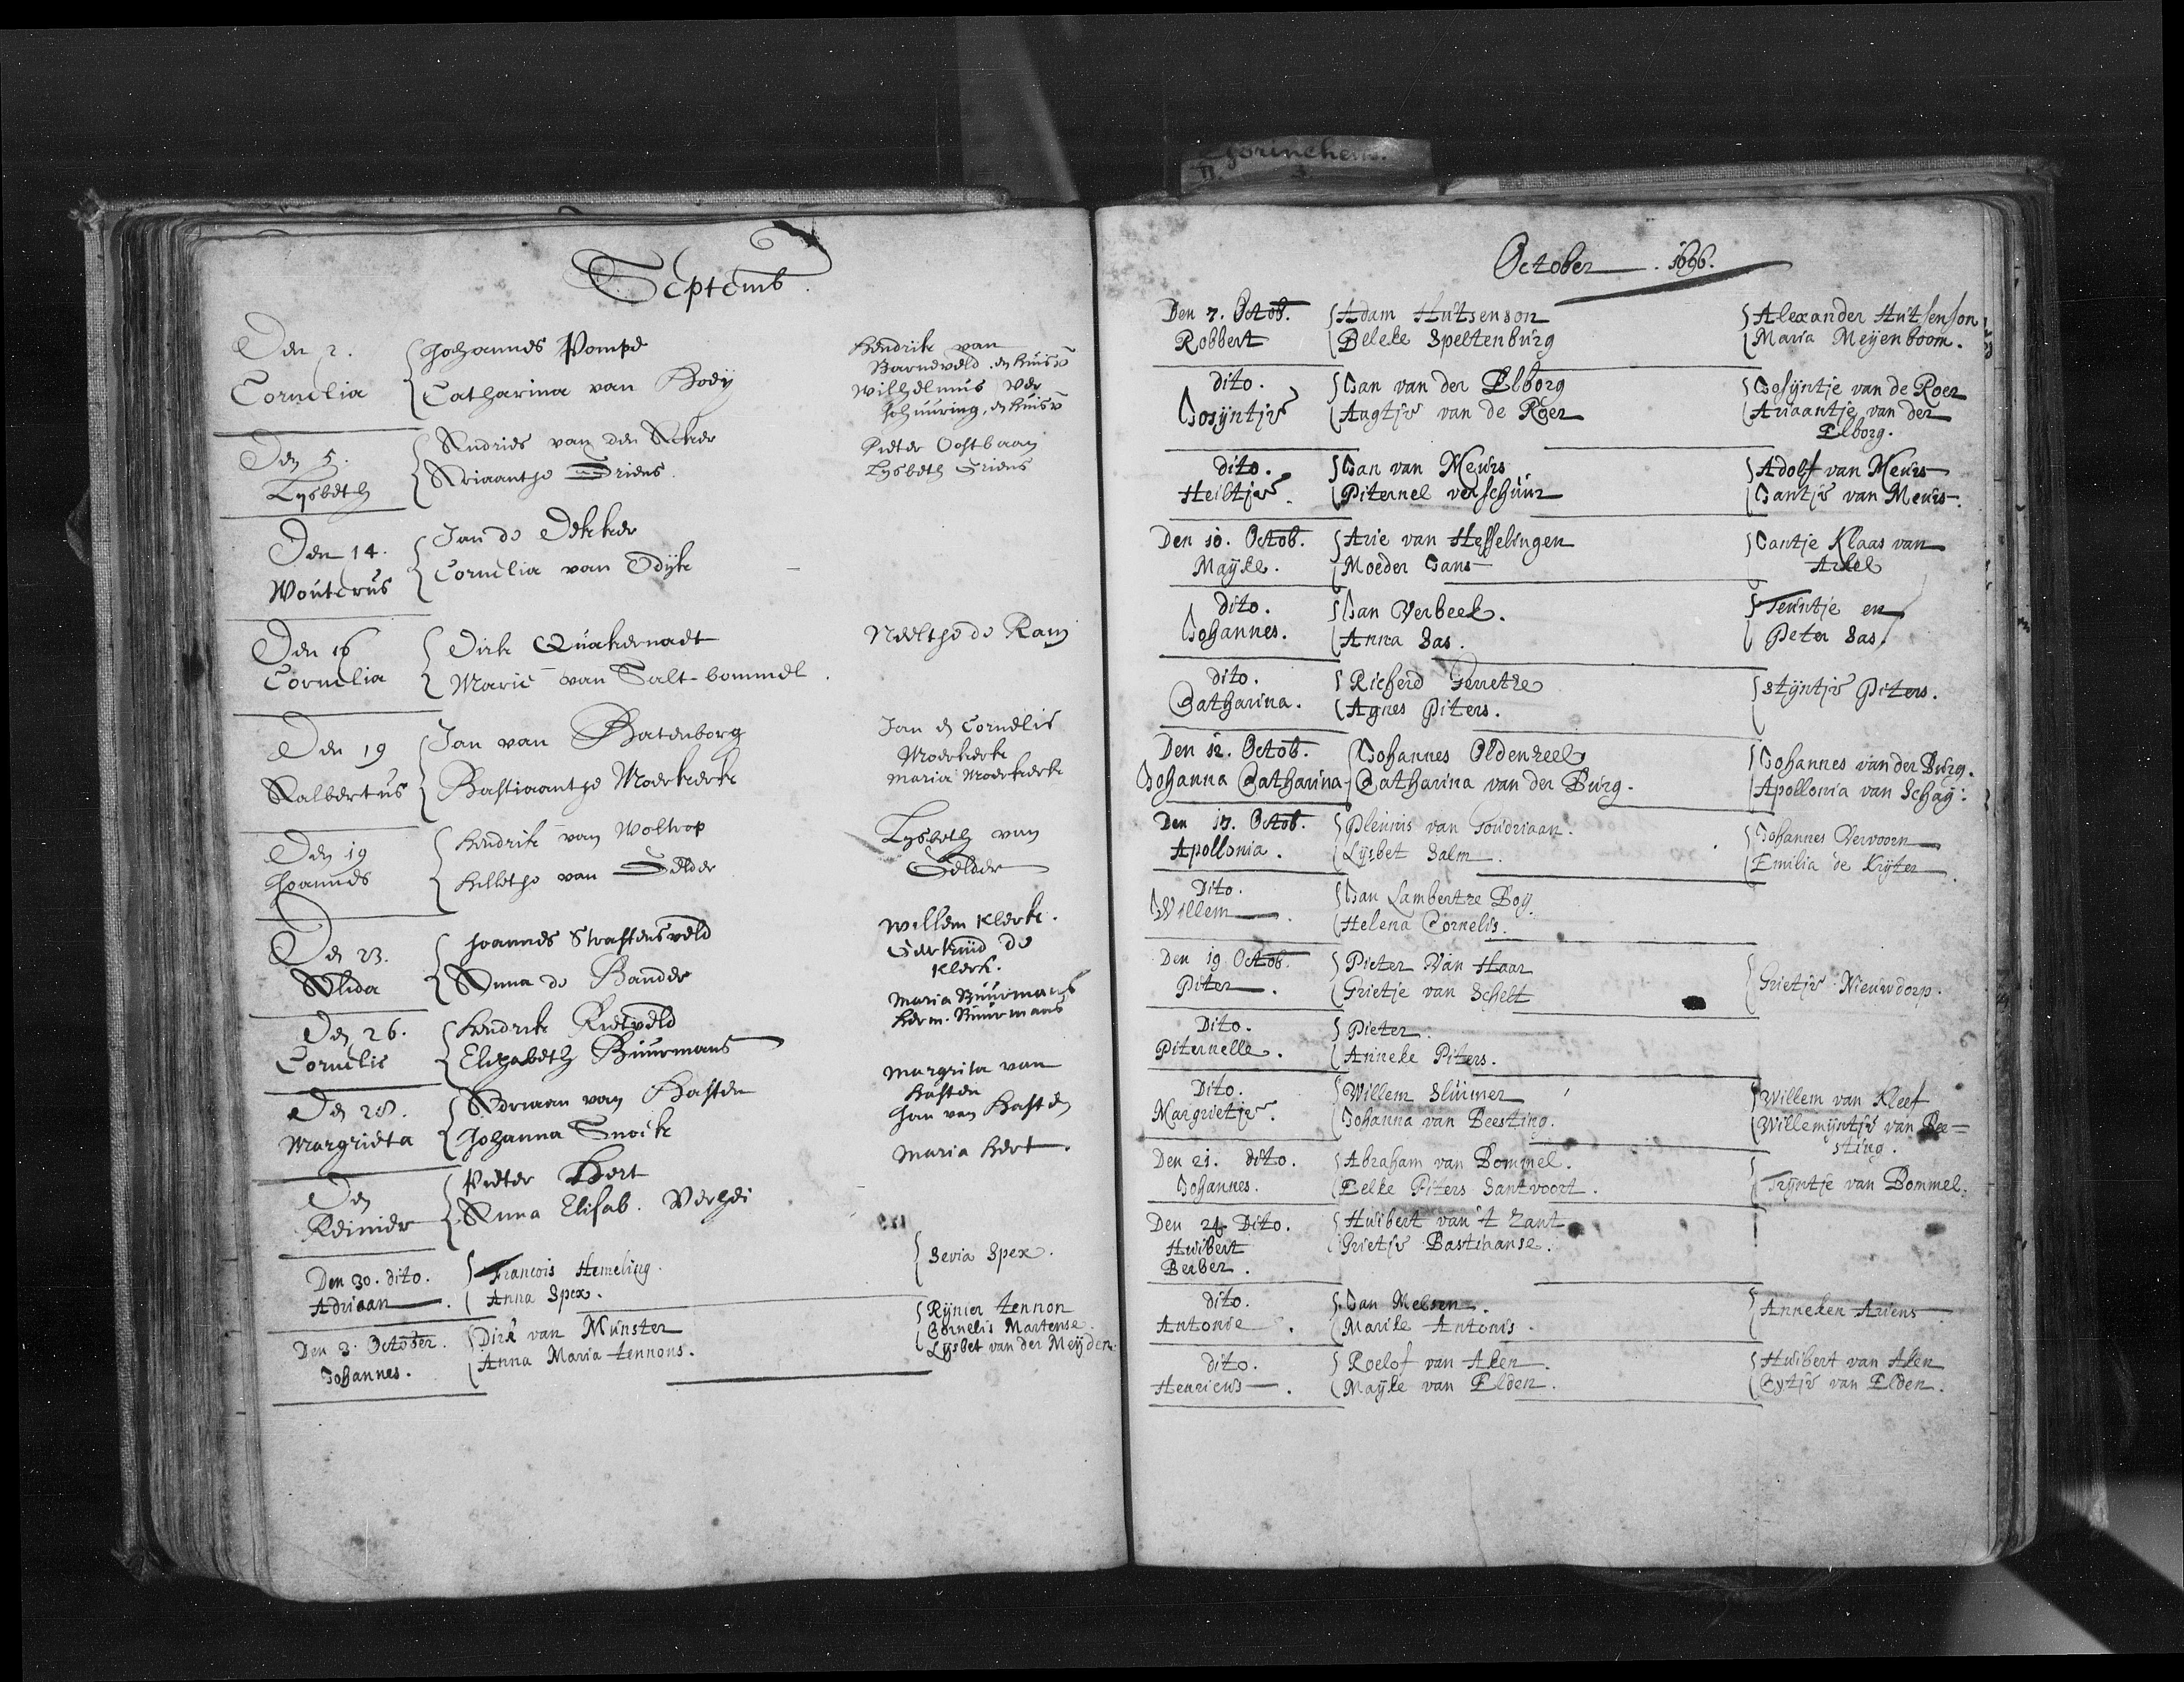 Gorinchem.
II. 3
Septemb.
Den 2. Johannes Pompe Hendrik van
Barneveld. en huisv
Cornelia Catharina van Boey Wilhelmus Ver
schuuring, en huisv
Den 5. Andries van den Acker Pieter Oostbaan
Lysbeth Ariaantje Driens. Lysbeth Driens
Den 14. Jan de Dekker
Wouterus Cornelia van Dijk
Den 16 Dirk Quakernadt Neeltje de Raay
Cornelia Marie van Salt-bommel.
Den 19 Jan van Batenborg Jan en Cornelis
Moerkerk
Aalbertus Bastiaantje Moerkerk Maria Moerkerk
Den 19 Hendrik van Woltrop Lysbeth van
Joannes Hilletje van Gelder Gelder
Den 23. Joannes Straftensveld Willem Klerk.
Geertruid de
Alida Anna de Bander Klerk.
Den 26. Hendrik Rietveld Maria Buurmans
Cornelis Elizabeth Buurmans Herm. Buurmaas
Den 28. Adriaan van Hasten Margrita van
Hasten
Margrieta Johanna Snoeck Jan van Hasten
Den Pieter Hert Maria Hert.
Reinier Anna Elisab. Verhei
Den 30. dito. Francois Hemeling. Sevia Spex.
Adriaan. Anna Spex.
Den 3. October. Dirk van Munster Rynier tennon
Cornelis Martense
Johannes. Anna Maria tennons. Lysbet van der Meijden.
October 1696.
Den 7. Octob. Adam Hutsenson Alexander Hutsenson
Robbert Beleke Speltenburg Maria Meyenboom.
dito. Jan van der Elborg Josyntje van de Roer
Josyntje Aagtje van de Roer Ariaantje van der
Elborg.
dito. Jan van Meurs Adolf van Meurs
Heiltje. Piternel verschuur Jantje van Meurs.
Den 10. Octob. Arie van Hesselingen Jantje Klaas van
Mayke. Moeder Jans Arkel
dito. Jan Verbeek. Teuntje en
Johannes. Anna Sas. Peter Sas
dito. Richerd Gerretze Styntje Piters.
Catharina. Agnes Piters.
Den 12. Octob. Johannes Oldenzeel Johannes van der Burg.
Johanna Catharina Catharina van der Burg. Apollonia van Schay:
Den 17. Octob. Pleunis van Goudriaan. Johannes Vervoorn
Apollonia. Lysbet Salm. Emilia de Kryter.
Dito. Jan Lambertze Boy.
Willem. Helena Cornelis.
Den 19 Octob. Pieter Van Haar Grietje Nieuwdorp.
Piter. Grietje van Schelt
Dito. Pieter.
Piternelle. Anneke Piters.
Dito. Willem Sluimer Willem van Kleef
Margrietje. Johanna van Beesting. Willemyntje van Bee-
sting.
Den 21. dito. Abraham van Bommel. Tryntje van Bommel.
Johannes. Eelke Piters Santvoort.
Den 24. Dito. Huibert van 't Zant
Huibert Grietje Bastiaanse.
Berber.
dito. Jan Melsen. Anneken Ariens
Antonie. Marike Antonis.
dito. Roelof van Aken. Huibert van Aken
Henricus. Mayke van Elden. Cytje van Elden.